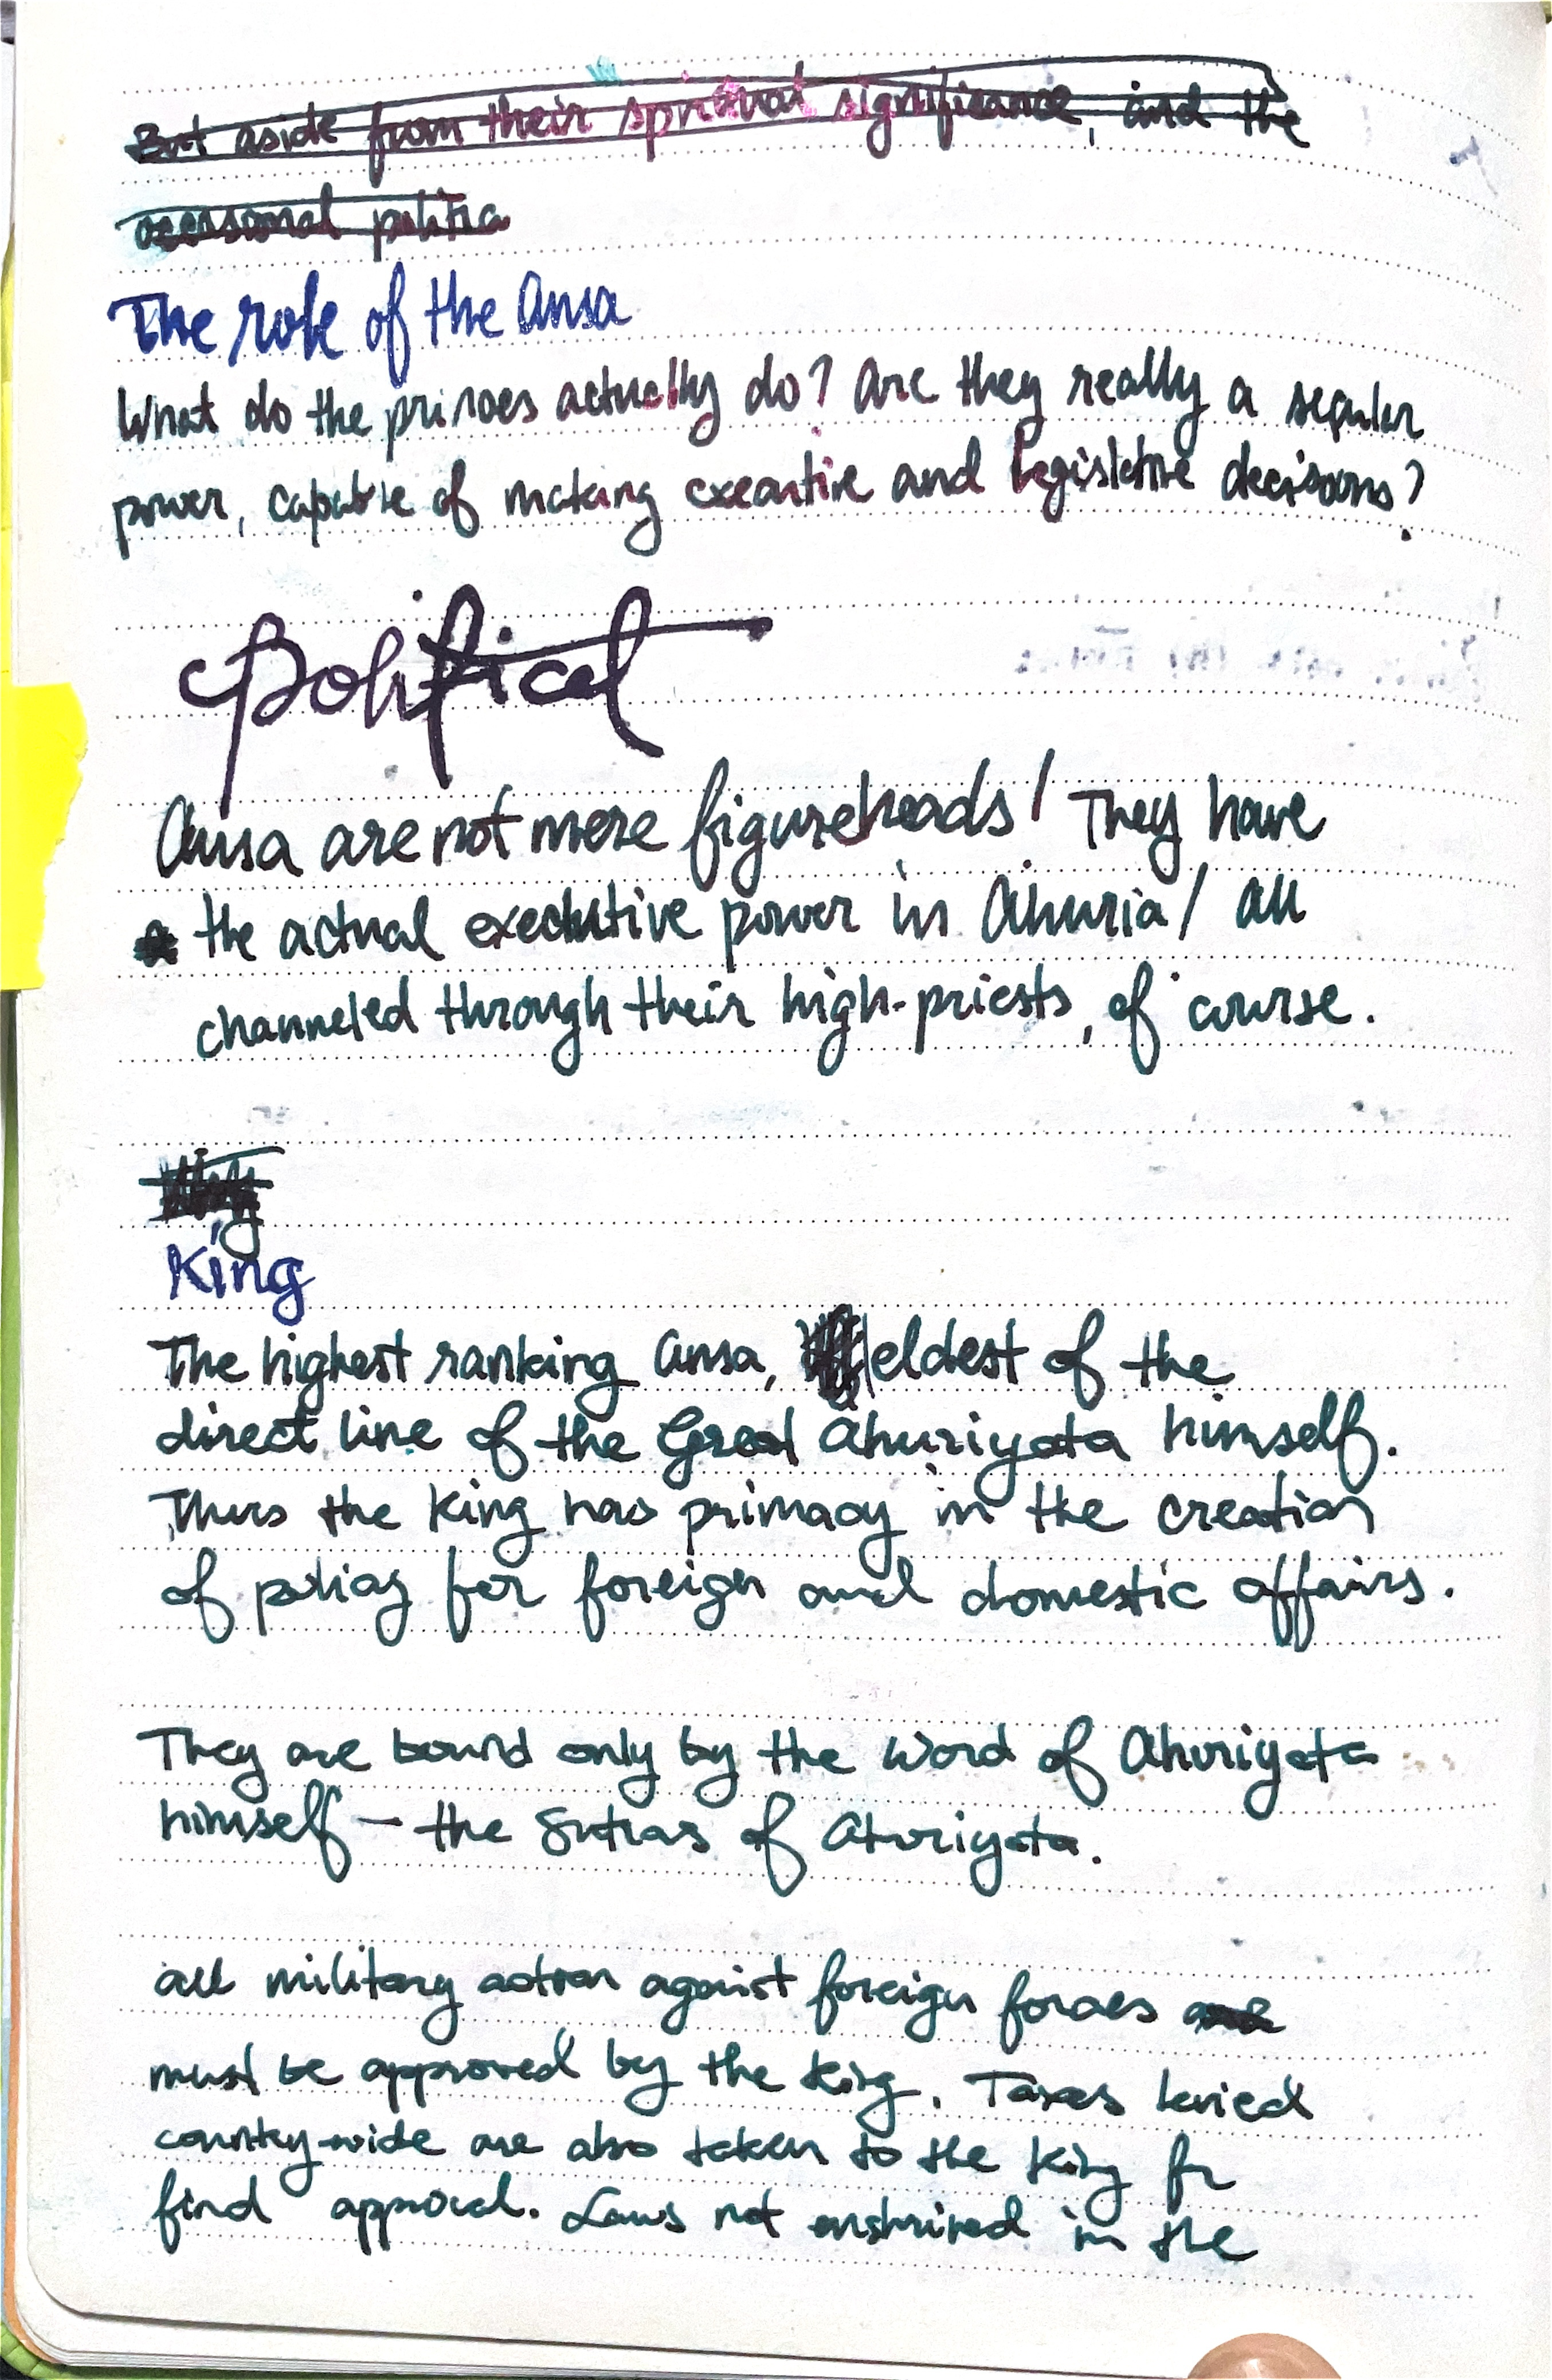 But aside from their spiritual significance, and the
occassional politica
The role of the Ansa
What do the princes actually do? Are they really a secular
power, capable of making executive and legislative decisions?
Political
Ansa are not mere figureheads! They have
the actual executive power in Ahuria! All
channeled through their high-priests, of course.
King
King
The highest ranking Ansa, eldest of the
direct line of the Great Ahuriyata himself.
Thus the King has primacy in the creation
of policy for foreign and domestic affairs.
They are bound only by the Word of Ahuriyata
himself - the Sutras of Ahuriyata.
All military action against foreign forces
must be approved by the King. Taxes levied
country-wide are also taken to the King for
final approval. Laws not enshrined in the